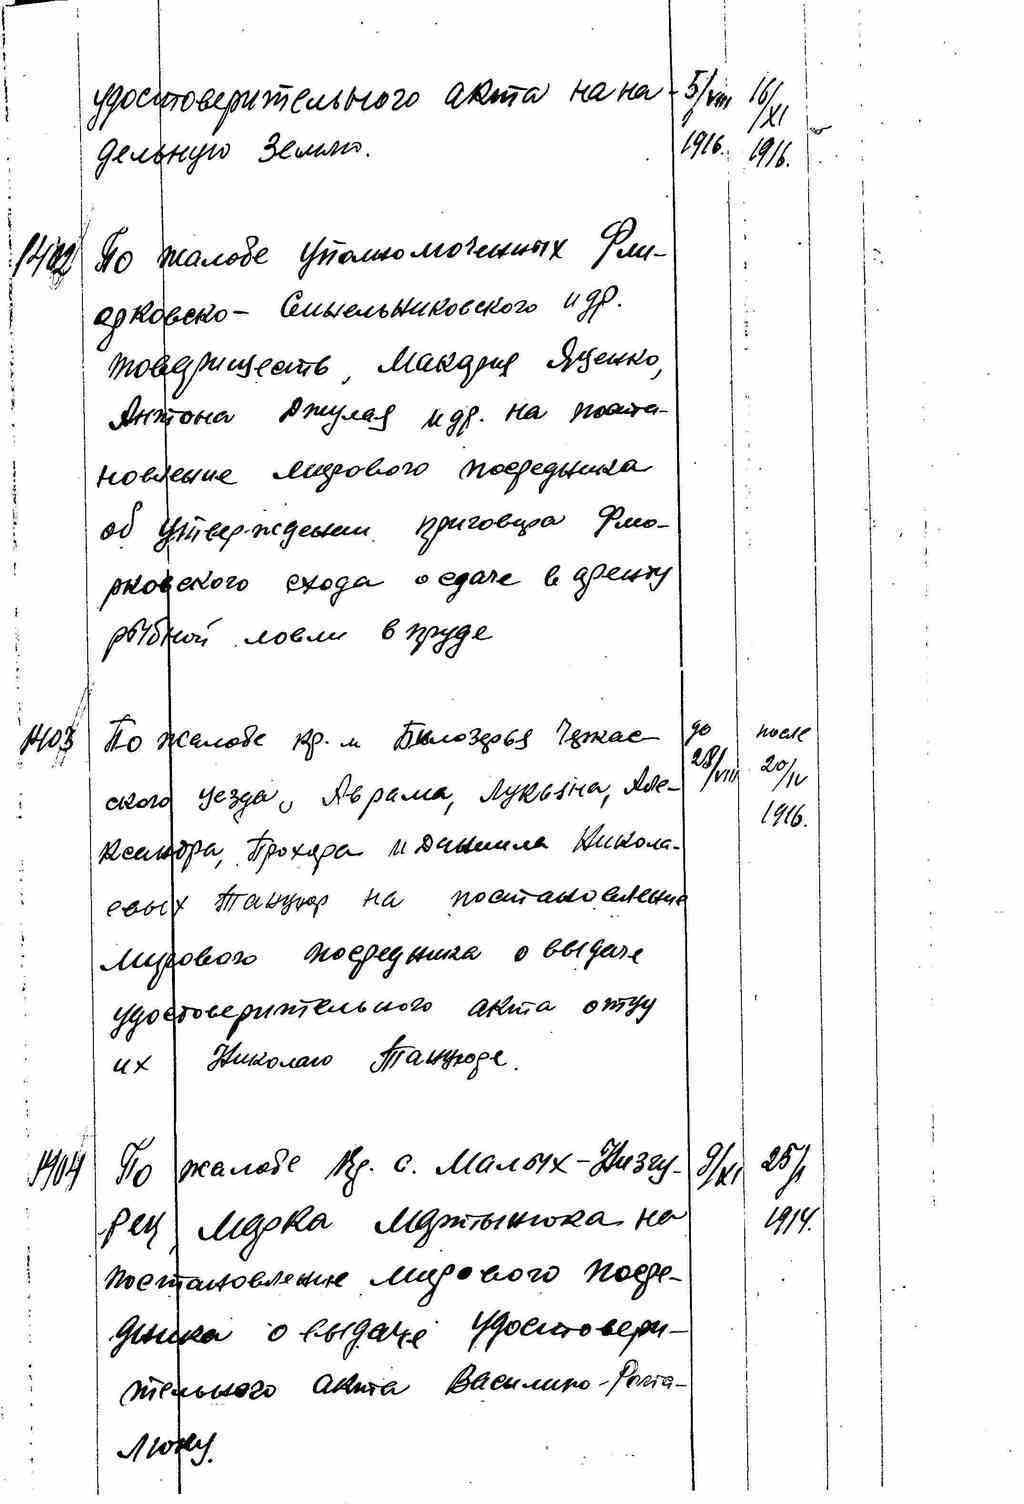 удостоверительного акта на на- 5/VIII 16/XI
дельную землю. 1916. 1916.
1402 По жалобе уполномоченных Фли-
ярковско-Синельниковского и др.
товариществ, Макария Яценко,
Антона Джулая и др. на поста-
новление мирового посредника
об утверждении приговора Флио-
рковского схода о сдаче в аренду
рыбной ловли в пруде
1403 По жалобе кр. м Билозерья Черкас- до после
ского уезда, Аврама, Лукьяна, Але- 28/VIII 20/IV
ксандра, Прохора и Даниила Никола- 1916.
евых на постановление
мирового посредника о выдаче
удостоверительного акта отцу
их Николаю
1404 По жалобе кр. с. Малых-Низгу- 9/XI 25/I
рец, Марка Мартынюка на 1914.
постановление мирового посре-
дника о выдаче удостовери-
тельного акта Василию Роста-
люку.